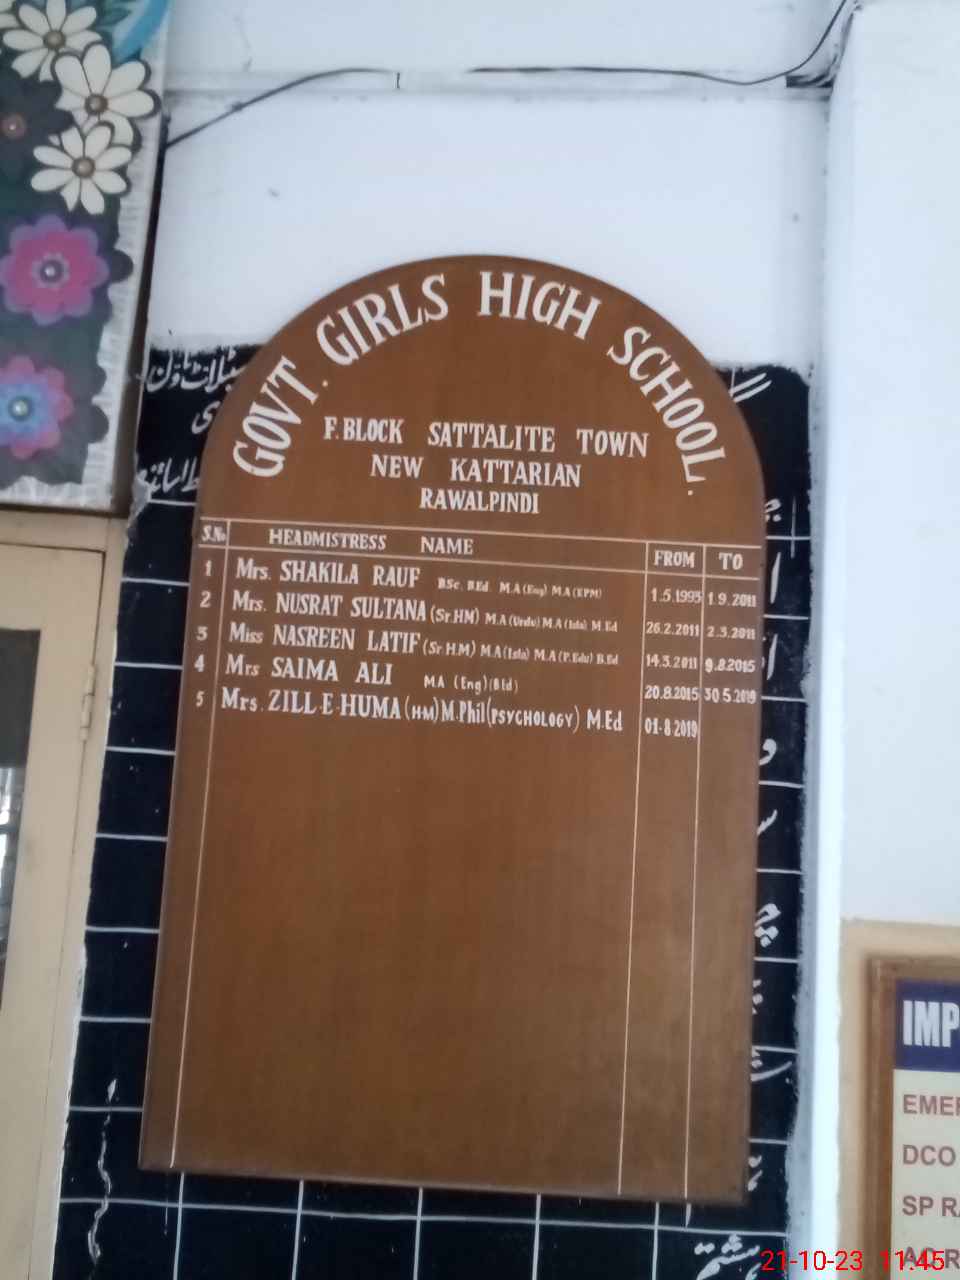 GOVT. GIRLS HIGH SCHOOL.
F. BLOCK SATTALITE TOWN
NEW KATTARIAN
RAWALPINDI
S.No HEADMISTRESS NAME FROM TO
1 Mrs. SHAKILA RAUF B.Sc. B.Ed M.A (Eng) M.A (EPM) 1.5.1995 1.9.2011
2 Mrs. NUSRAT SULTANA (Sr.HM) M.A (Urdu) M.A (Isla) M.Ed 26.2.2011 2.3.2011
3 Miss NASREEN LATIF (Sr.H.M) M.A (Isla) M.A (P.Edu) B.Ed 14.3.2011 9.8.2015
4 Mrs SAIMA ALI M.A (Eng) (B.Ed) 20.8.2015 30 5.2019
5 Mrs. ZILL-E-HUMA (HM) M.Phil (PSYCHOLOGY) M.Ed 01-8-2019
سیٹلائٹ ٹاؤن
IMP
EMER
DCO
SP RA
21-10-23 11:45